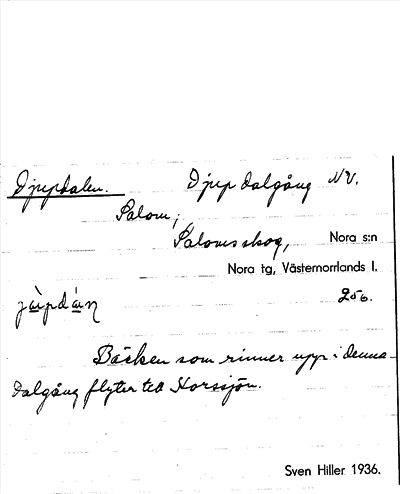 Djupdalen. Djup dalgång NV.
Salom;
Saloms skog, Nora s:n
Nora tg, Västernorrlands l.
jàpdán 256.
Bäcken som rinner upp i denna
dalgång flyter till Horssjön.
Sven Hiller 1936.